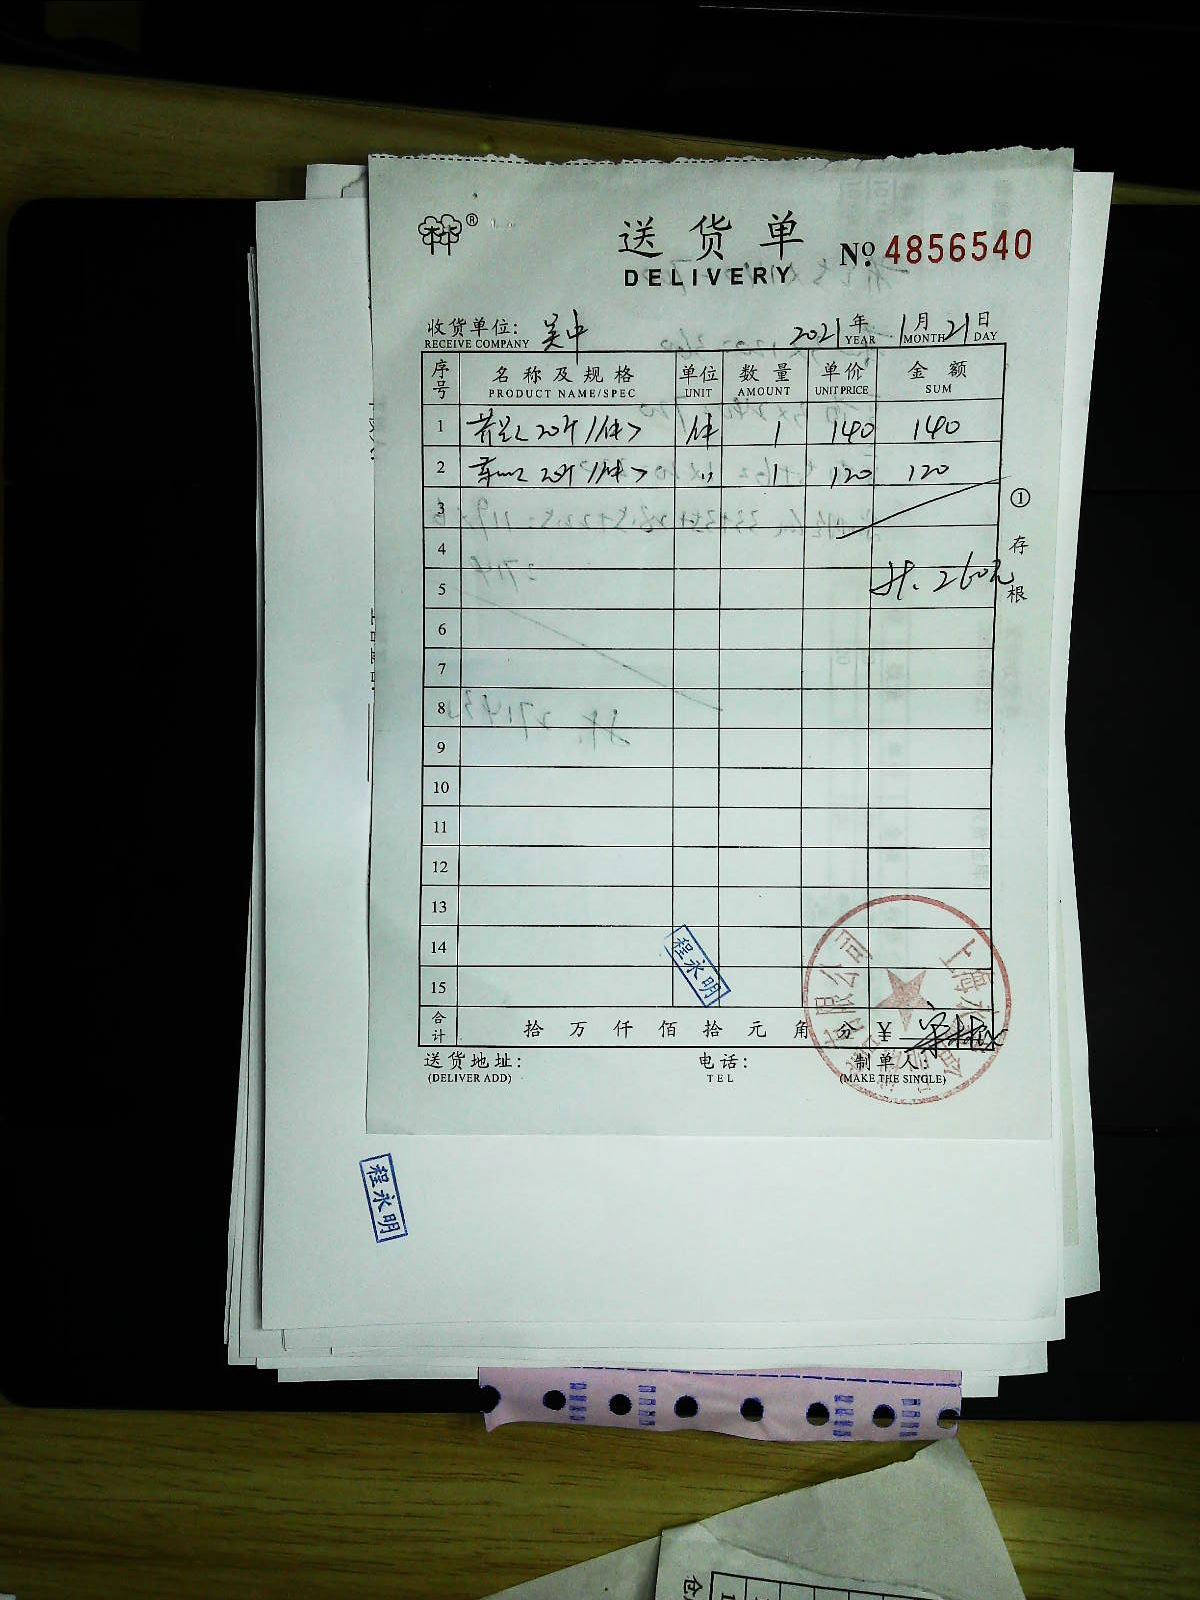 ®
送货单
DELIVERY
No. 4856540
收货单位: 吴中 2021年1月21日
RECEIVE COMPANY YEAR MONTH DAY
序号 名称及规格 单位 数量 单价 金额
PRODUCT NAME/SPEC UNIT AMOUNT UNIT PRICE SUM
1 20个/件 件 1 140 140
2 20个/件 〃 1 120 120
3
4
5 共: 260元
6
7
8
9
10
11
12
13
14
15
①存根
程永明
合计 拾万仟佰拾元角分 ¥
送货地址: 电话: 制单人:
(DELIVER ADD) TEL (MAKE THE SINGLE)
有限公司
程永明